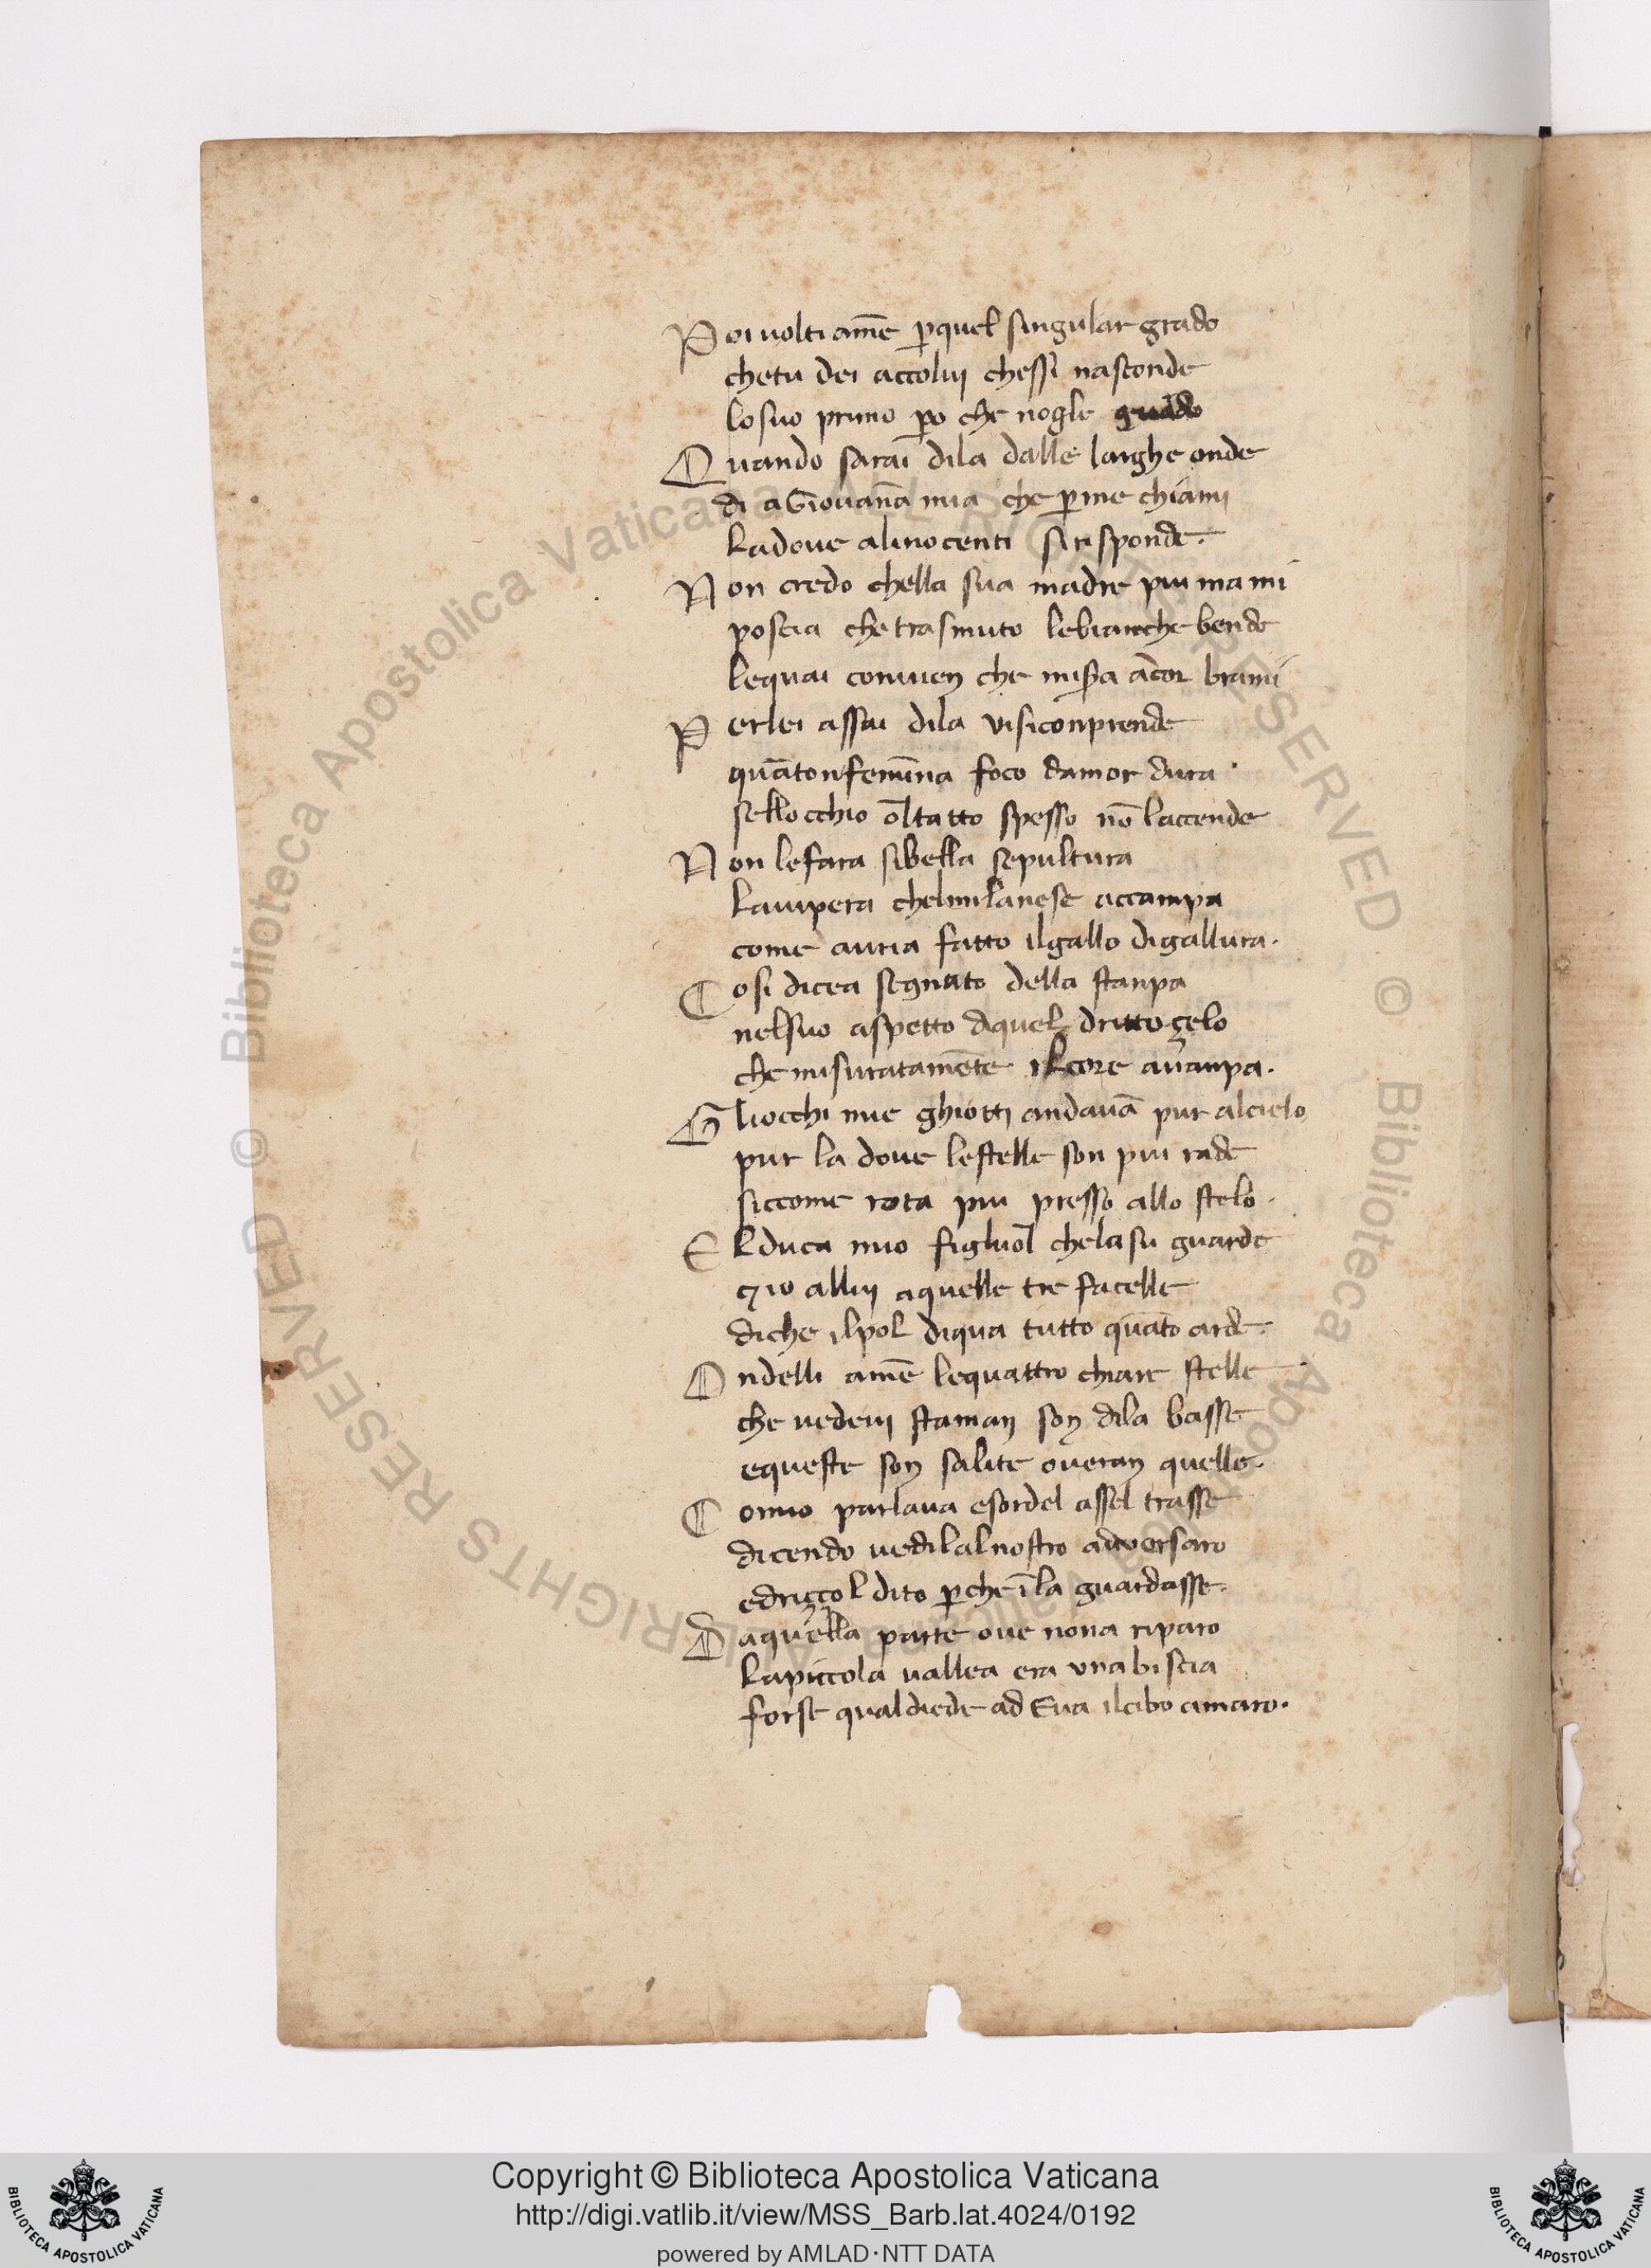 Poi volti amē ꝑquel singular grado
chetu dei accoluj chessi nasconde
lo suo primo ꝑo che nogle guado
Quando sarai dila dalle larghe onde
di a Giovanā mia che ꝑme chiami
Ladove alinocenti si risponde.
Non credo chella sua madre piu mami
poscia che trasmuto lebianche bende
lequai convien che misa ācor brami
Perlei assai dila visiconprende
quāto in femīna foco damor dura
sellocchio ol tatto spesso nō laccende
Non lefara sibella sepultura
Lavipera chelmilanese accampa
come avria fatto ilgallo digallura.
Cosi dicea segnato della stanpa
nelsuo aspetto diquel dritto çelo
che misuratamēte ilcore avanpa.
Gliocchi mie ghiotti andavā pur alcielo
pur la dove lestelle son piu rade
siccome rota piu presso allo stelo.
El duca mio figliuol chelasu guarde
⁊io alluj aquelle tre facelle
diche ilpol diqua tutto quāto arde.
Ondelli amē lequattro chiare stelle
che vedevj staman son dila basse
equeste son salite overan quelle.
Comio parlava esordel assel trasse
dicendo vedilalnostro adversaro
edriçço l dito ꝑche ī la guardasse.
Daquella parte ove nona riparo
Lapiccola vallea era una biscia
forse qualdiede ad Eva ilcibo amaro.
© Biblioteca Apostolica Vaticana ALL RIGHTS RESERVED © Biblioteca Apostolica Vaticana ALL RIGHTS RESERVED
Copyright © Biblioteca Apostolica Vaticana
http://digi.vatlib.it/view/MSS_Barb.lat.4024/0192
powered by AMLAD·NTT DATA
BIBLIOTECA APOSTOLICA VATICANA
BIBLIOTECA APOSTOLICA VATICANA